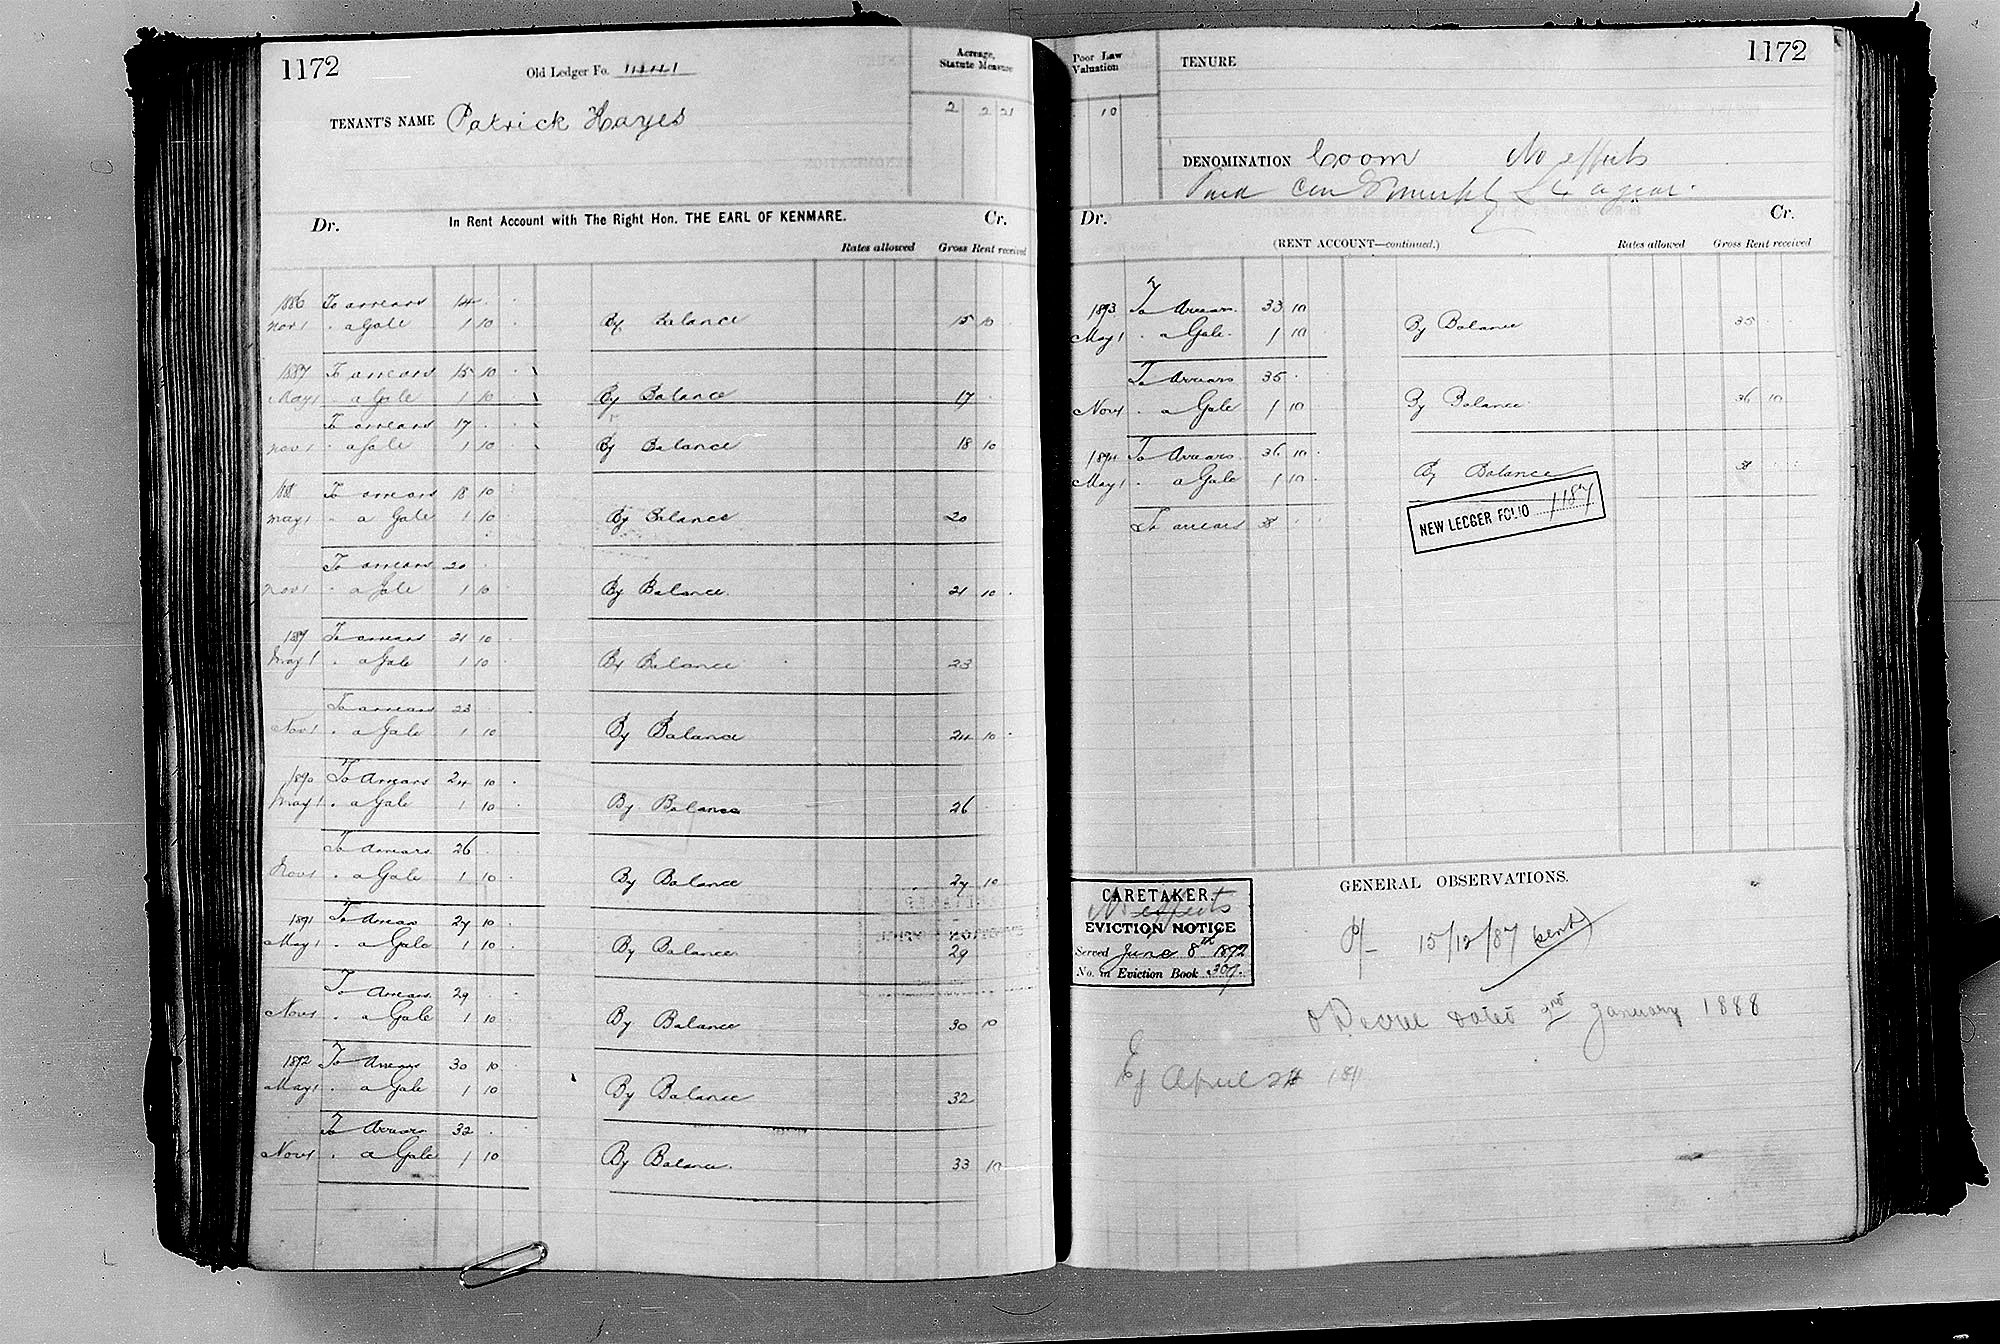 1172
Old Ledger Fo.
Acreage, Statute Measure
TENANT'S NAME Patrick Hayes
2 2 21
Dr. In Rent Account with The Right Hon. THE EARL OF KENMARE. Cr.
Rates allowed Gross Rent received
1886 To arrears 14
Nov 1 " a Gale 1 10 By Balance 15 10
1887 To arrears 15 10
May 1 " a Gale 1 10 By Balance 17
To arrears 17
Nov 1 " a Gale 1 10 By Balance 18 10
188 To arrears 18 10
May 1 " a Gale 1 10 By Balance 20
To arrears 20
Nov 1 " a Gale 1 10 By Balance 21 10
189 To arrears 21 10
May 1 " a Gale 1 10 By Balance 23
To arrears 23
Nov 1 " a Gale 1 10 By Balance 24 10
1890 To Arrears 24 10
May 1 " a Gale 1 10 By Balance 26
To Arrears 26
Nov 1 " a Gale 1 10 By Balance 27 10
1891 To Arrears 27 10
May 1 " a Gale 1 10 By Balance 29
To Arrears 29
Nov 1 " a Gale 1 10 By Balance 30 10
1892 To Arrears 30 10
May 1 " a Gale 1 10 By Balance 32
To Arrears 32
Nov 1 " a Gale 1 10 By Balance 33 10
Poor Law Valuation
TENURE
1172
10
DENOMINATION Coom No effects
a year.
Dr. Cr.
(RENT ACCOUNT—continued.) Rates allowed Gross Rent received
1893 To Arrears 33 10
May 1 " a Gale 1 10 By Balance 35
To Arrears 35
Nov 1 " a Gale 1 10 By Balance 36 10
1894 To Arrears 36 10
May 1 " a Gale 1 10 By Balance 38
To arrears 38
NEW LEDGER FOLIO 1187
GENERAL OBSERVATIONS.
CARETAKER.
No effects
EVICTION NOTICE
Served June 8th 1892
No. in Eviction Book 307.
P/- 15/12/87 (sent)
Decree dated 3rd January 1888
Ej April 24 1891